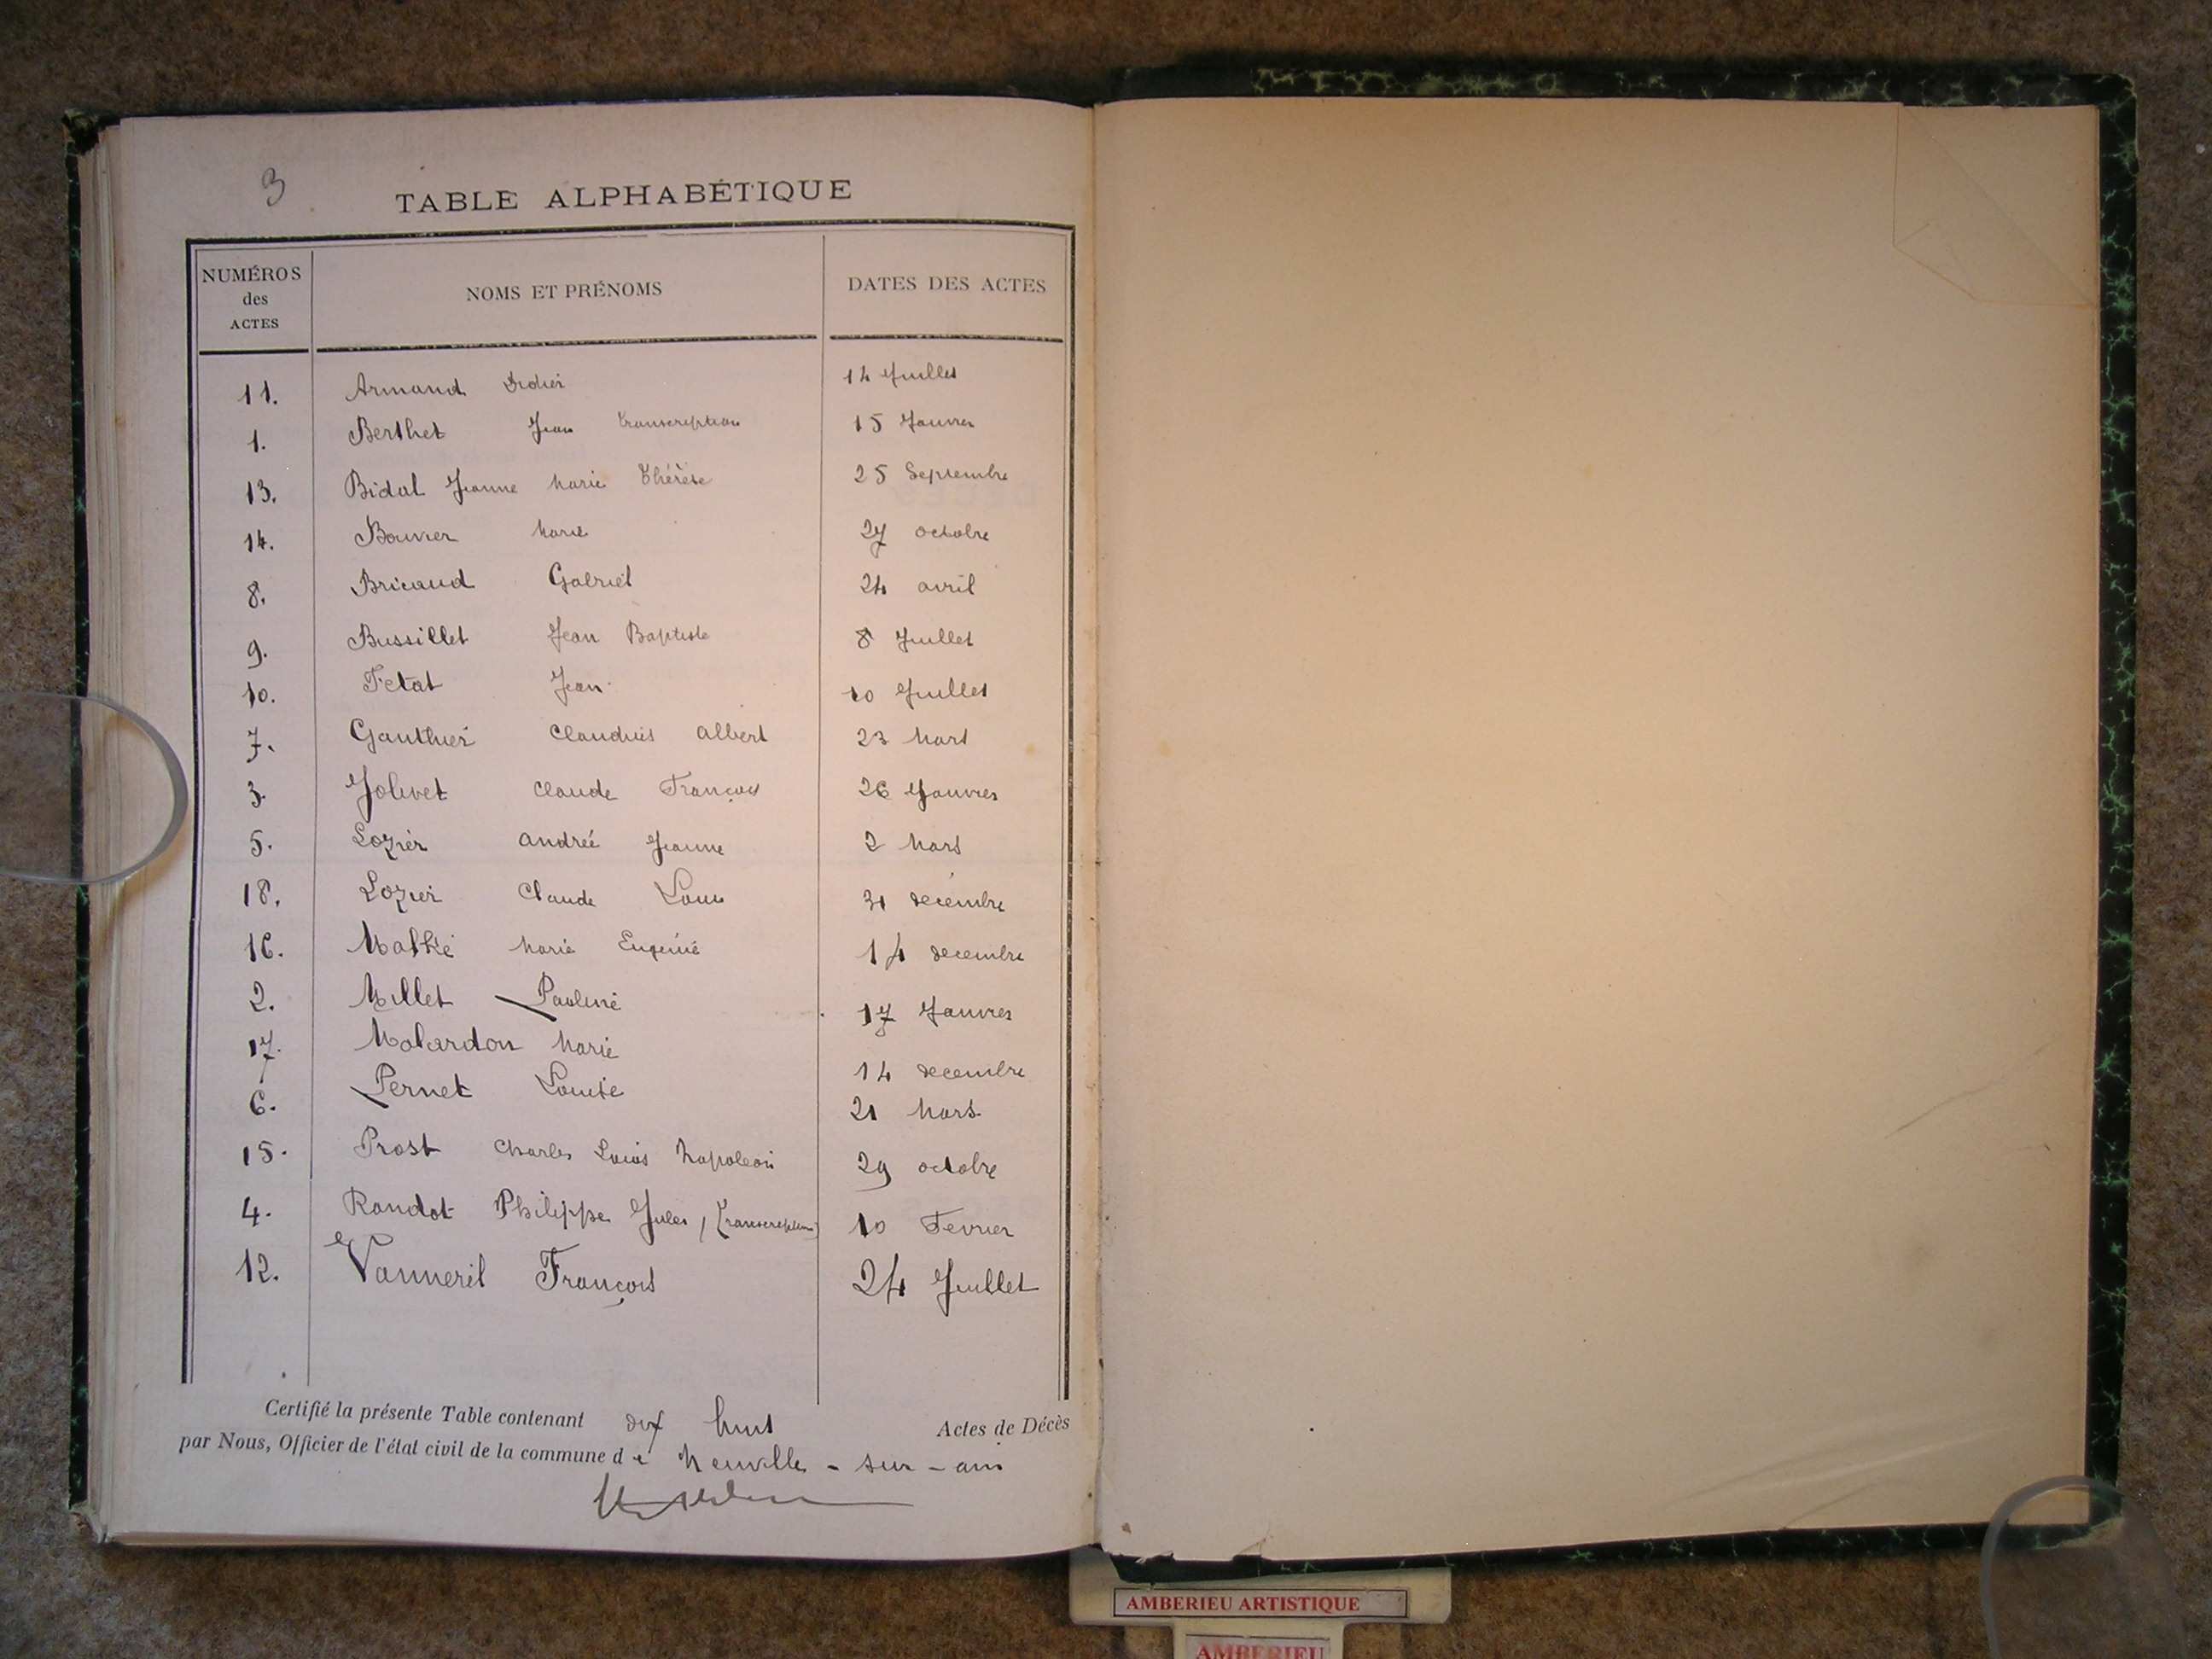 3
TABLE ALPHABÉTIQUE
NUMÉROS des ACTES NOMS ET PRÉNOMS DATES DES ACTES
11. Armand Didier 14 Juillet
1. Berthet Jean transcription 15 Janvier
13. Bidal Jeanne Marie Thérèse 25 Septembre
14. Bouvier Marie 27 octobre
8. Bricaud Gabriel 24 avril
9. Bussillet Jean Baptiste 8 Juillet
10. Fetat Jean 10 Juillet
7. Gauthier Claudius Albert 23 Mars
3. Jolivet Claude François 26 Janvier
5. Lozier Andrée Jeanne 2 Mars
18. Lozier Claude Louis 31 decembre
16. Marie Eugenie 14 decembre
2. Millet Pauline 17 Janvier
17. Molardon Marie 14 decembre
6. Pernet Louise 21 Mars
15. Prost Charles Louis Napoleon 29 octobre
4. Randot Philippe Jules, (transcription) 10 Fevrier
12. Vanneril François 24 Juillet
Certifié la présente Table contenant dix huit Actes de Décès
par Nous, Officier de l'état civil de la commune de Neuville - sur - ain
AMBERIEU ARTISTIQUE
AMBERIEU